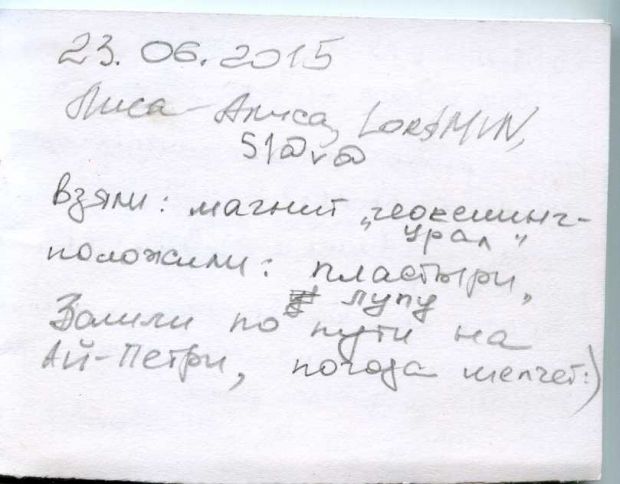 23.06.2015
Лиса-Алиса, LorsMIN,
Sl@v@
Взяли: магнит „геокешинг-
урал"
положили: пластыри,
лупу
Зашли по пути на
Ай-Петри, погода шепчет:)